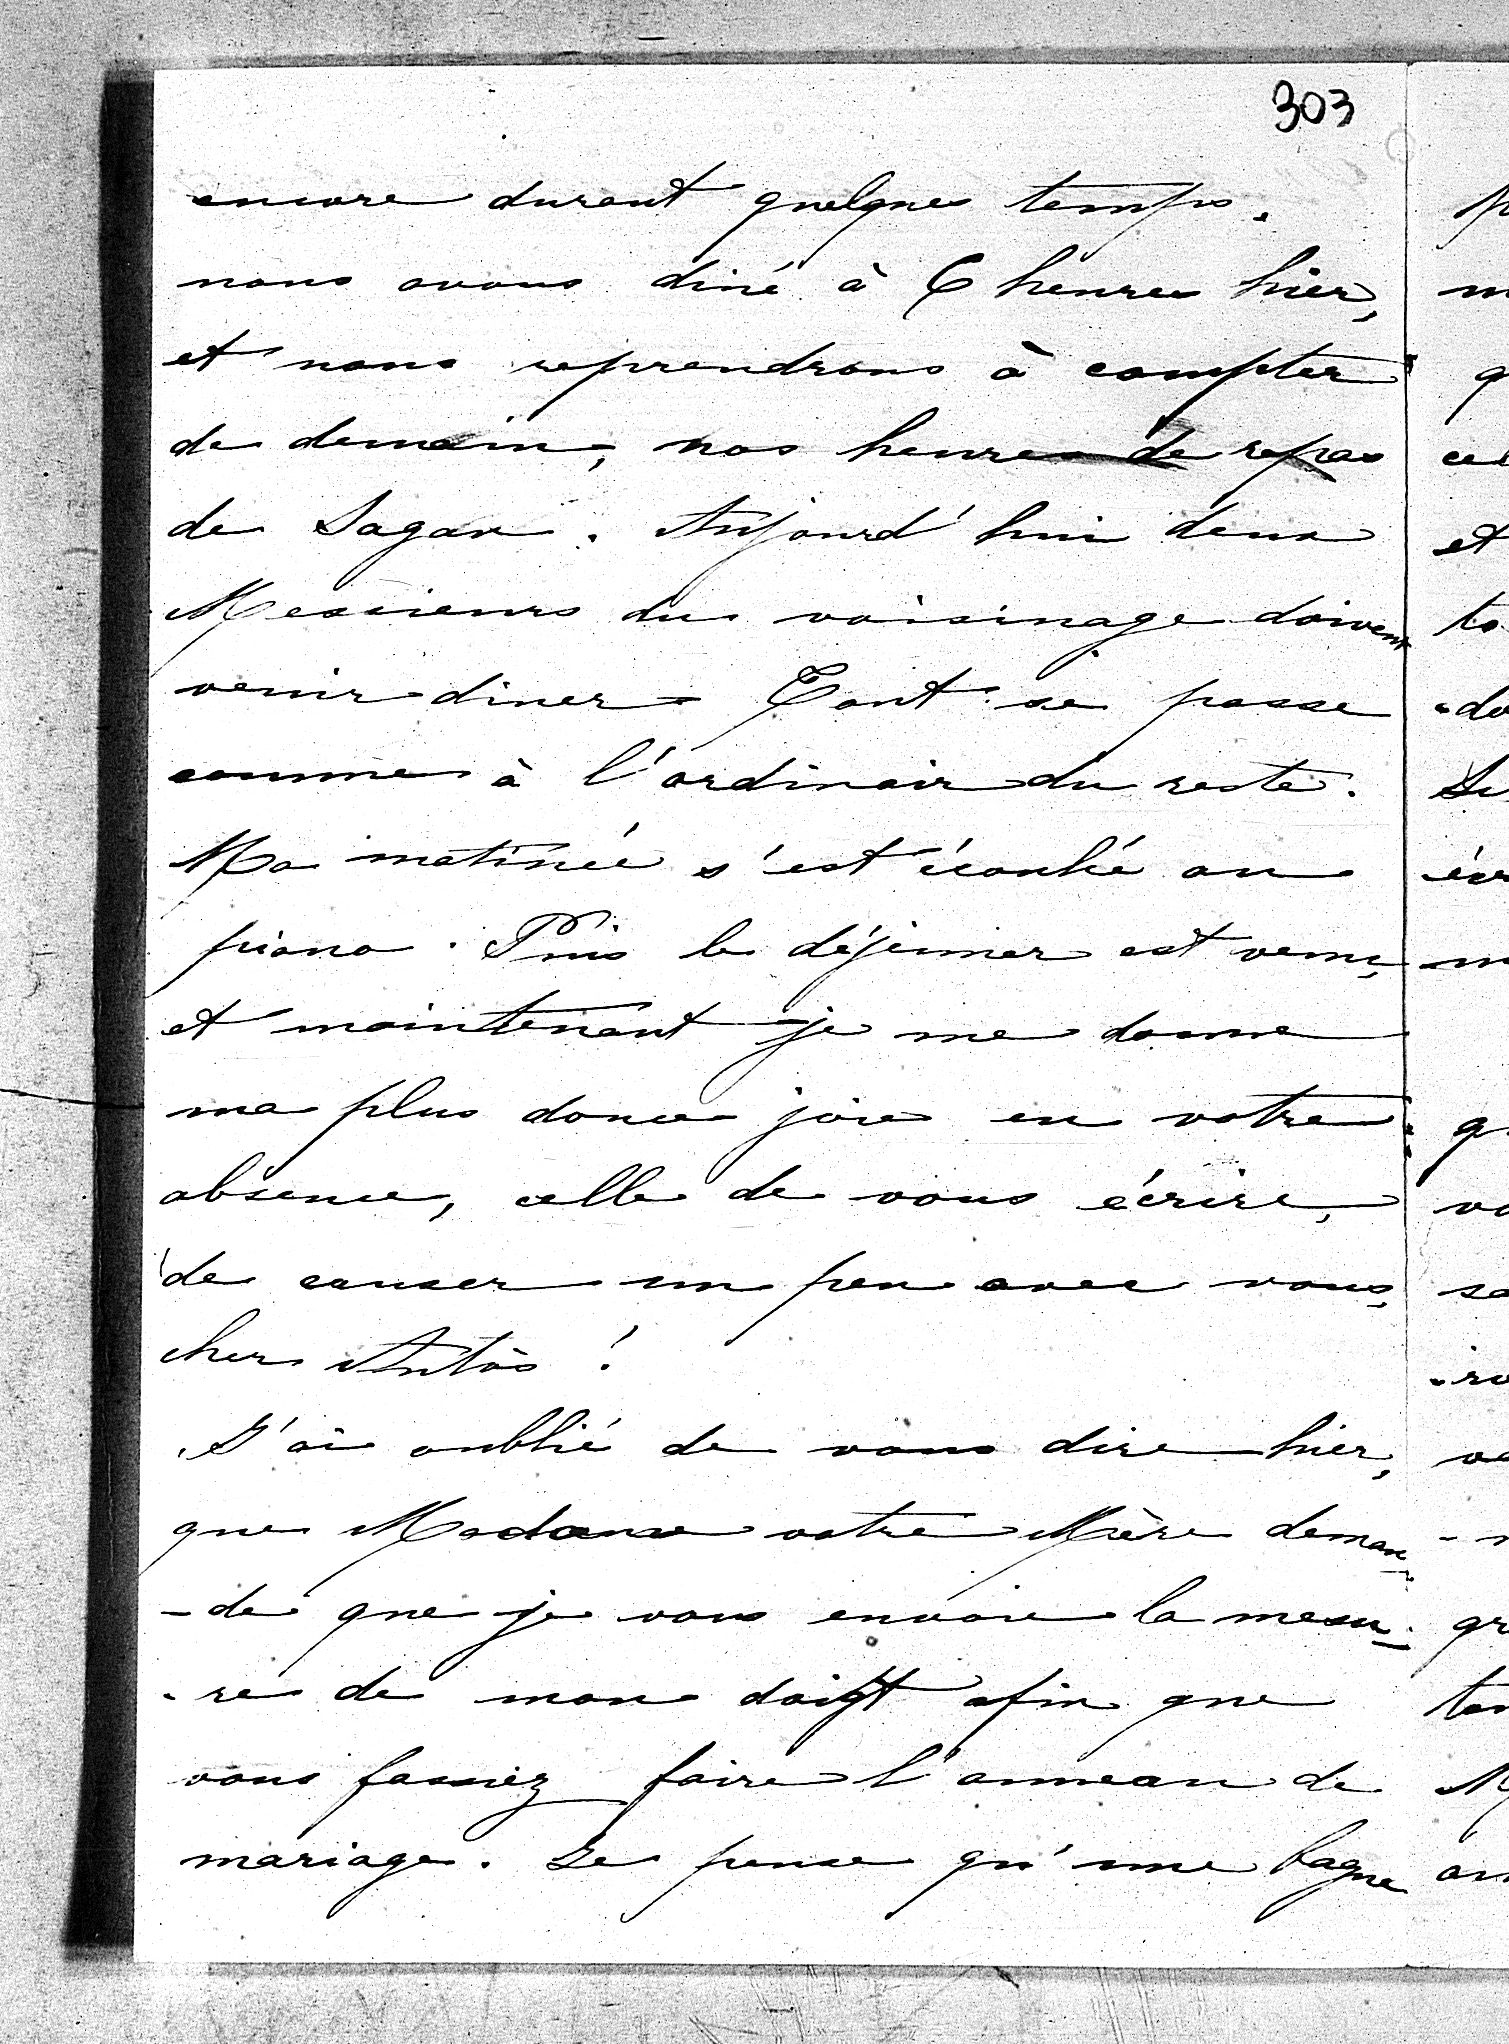 303
encore durant quelques temps.
nous avons diné à 6 heures hier,
et nous reprendrons à compter
de demain, nos heures de repas
de Sagan. Aujourd'hui deux
Messieurs du voisinage doivent
venir diner - Tout se passe
comme à l'ordinair du reste.
Ma matinée s'est écoulé au
piano. Puis le déjeuner est venu,
et maintenant je me donne
ma plus douce joie en votre
absence, celle de vous écrire,
de causer un peu avec vous,
cher Antos !
J'ai oublié de vous dire hier,
que Madame votre Mère deman-
-de que je vous envoie la mesu-
-re de mon doigt afin que
vous fassiez faire l'anneau de
mariage. Je pense qu'une bague